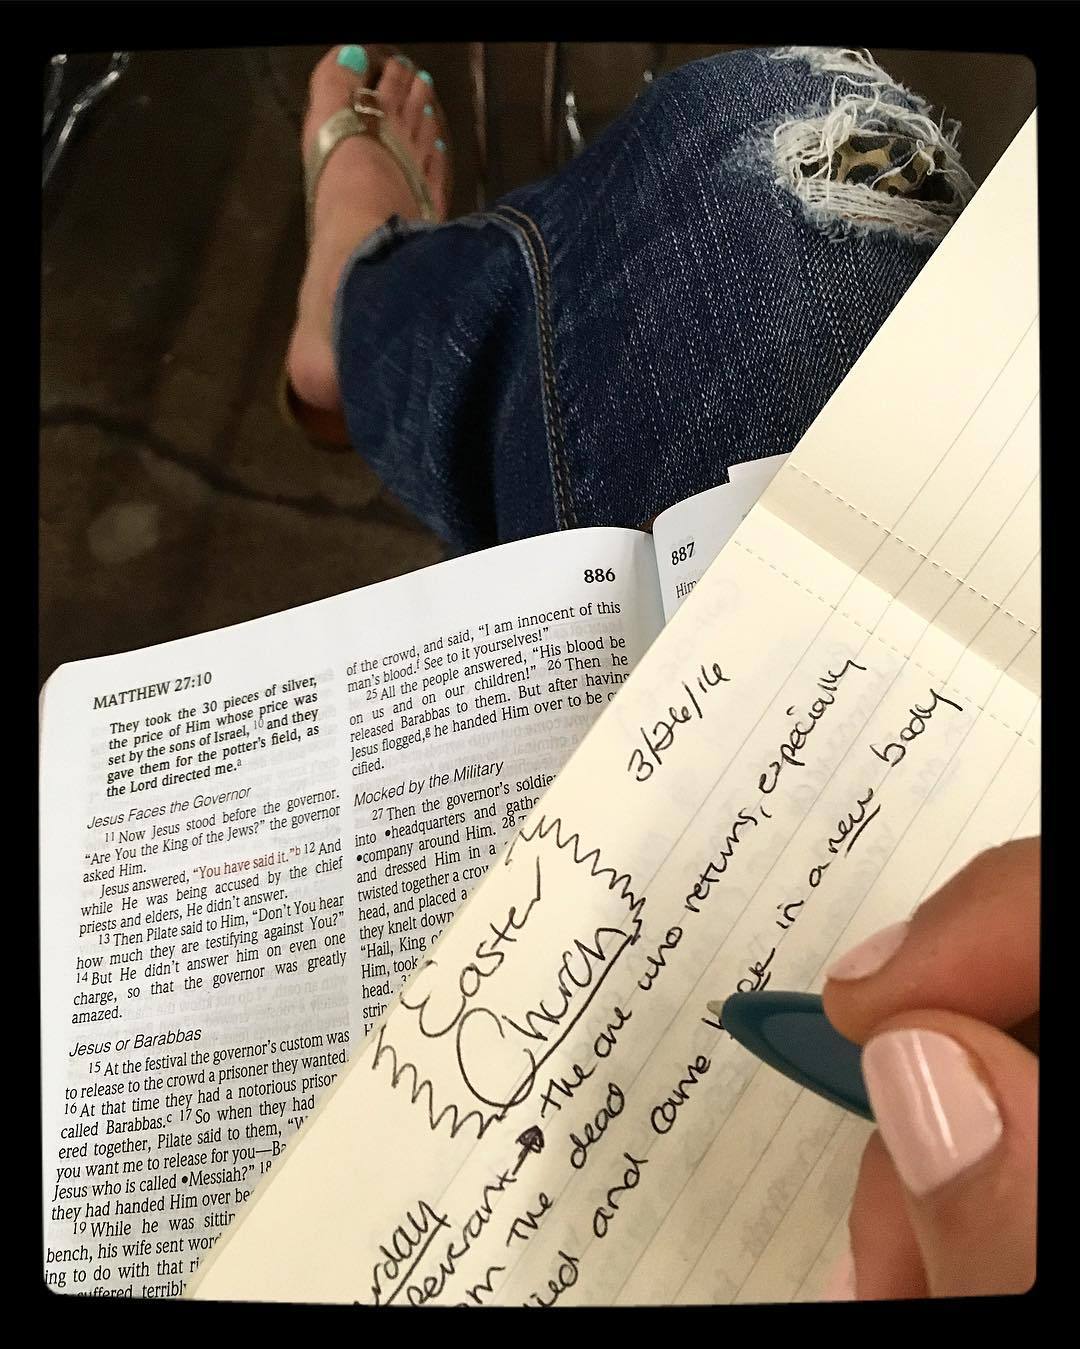 886
MATTHEW 27:10
They took the 30 pieces of silver,
the price of Him whose price was
set by the sons of Israel, 10 and they
gave them for the potter's field, as
the Lord directed me.a
Jesus Faces the Governor
11 Now Jesus stood before the governor.
"Are You the King of the Jews?" the governor
asked Him.
Jesus answered, "You have said it."b 12 And
while He was being accused by the chief
priests and elders, He didn't answer.
13 Then Pilate said to Him, "Don't You hear
how much they are testifying against You?"
14 But He didn't answer him on even one
charge, so that the governor was greatly
amazed.
Jesus or Barabbas
15 At the festival the governor's custom was
to release to the crowd a prisoner they wanted.
16 At that time they had a notorious
called Barabbas.c 17 So when they had
ered together, Pilate said to them,
you want me to release for you—
Jesus who is called •Messiah?" 18
they had handed Him over
19 While he was
bench, his wife sent
ing to do with that
suffered
of the crowd, and said, "I am innocent of this
man's blood.f See to it yourselves!"
25 All the people answered, "His blood be
on us and on our children!" 26 Then he
released Barabbas to them. But after having
Jesus flogged,g he handed Him over to be
cified.
Mocked by the Military
27 Then the governor's
into •headquarters and
•company around Him. 28
and dressed Him in a
twisted together a
head, and placed a
they knelt down
"Hail, King
Him, took
head.
887
Him
3/26/16
Easter
Church
the one who returns, especially
the dead
and came back in a new body